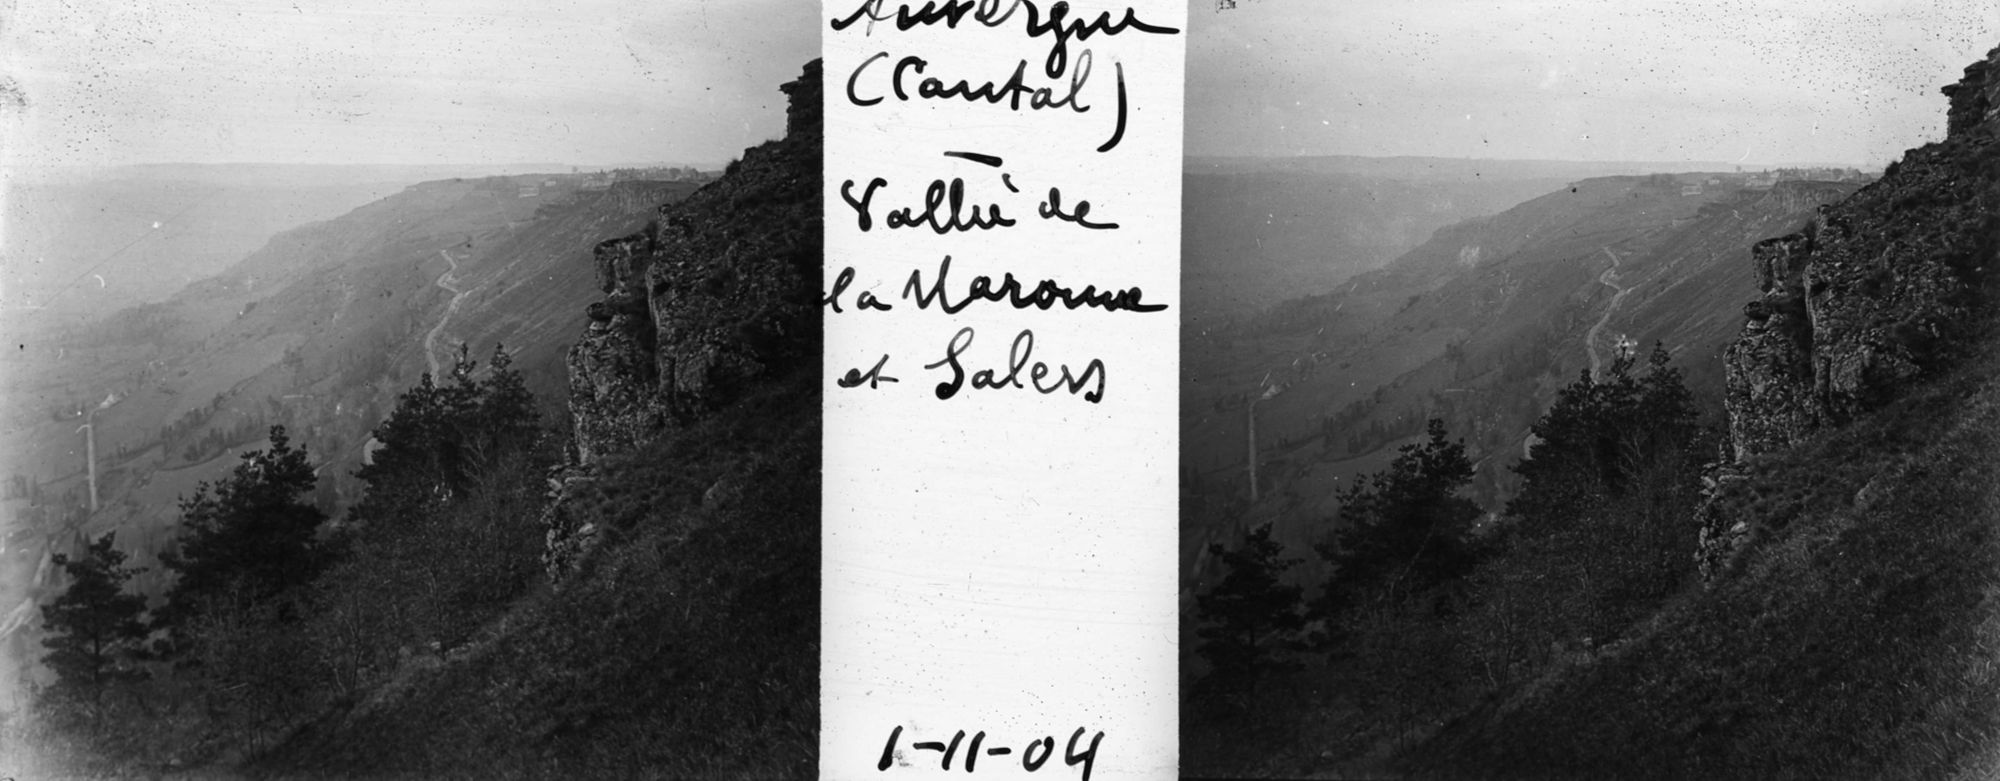 Auvergne
(Cantal)
—
Vallée de
la Maronne
et Salers
1-11-04